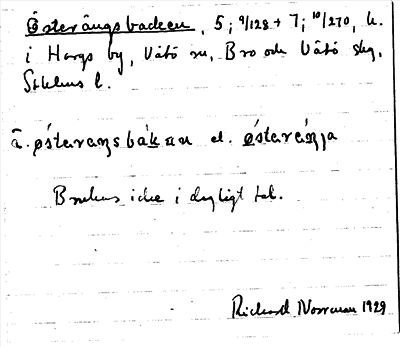 Österängsbacken, 5; 9/128 + 7; 10/270, h.
i Hargs by, Vätö sn, Bro och Vätö skg,
Sthlms l.
ā. østeraŋsbakan el. østeräŋja
Brukas icke i dagligt tal.
Richard Norrman 1929